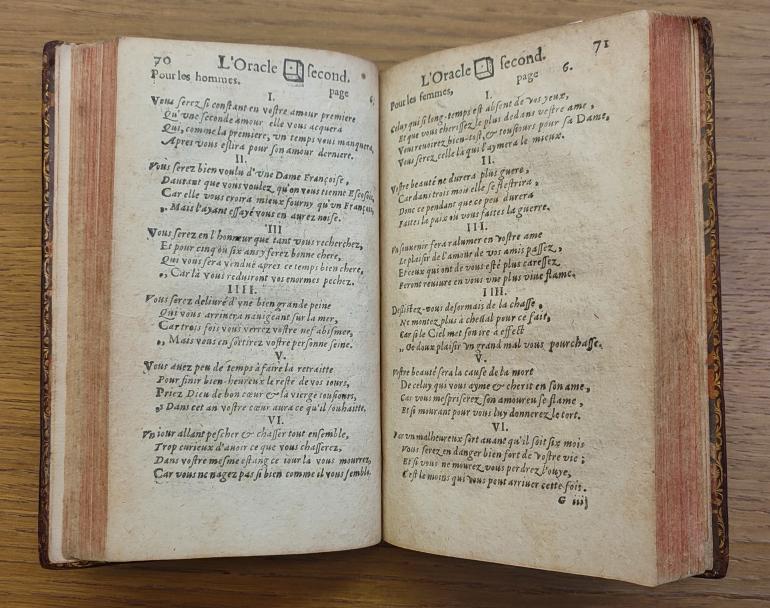 70
L'Oracle second.
Pour les hommes. page 6.
I.
Vous serez si constant en vostre amour premiere
Qu'vne seconde amour elle vous acquera
Qui, comme la premiere, vn temps vous manquera,
Apres vous eslira pour son amour derniere.
II.
Vous serez bien voulu d'vne Dame Françoise,
Dautant que vous voulez, qu'on vous tienne Escossois,
Car elle vous croira mieux fourny qu'vn François,
„ Mais l'ayant essayé vous en aurez noise.
III
Vous serez en l'honneur que tant vous recherchez,
Et pour cinq ou six ans y ferez bonne chere,
Qui vous sera vendue apres ce temps bien chere,
„ Car là vous reduiront vos enormes pechez.
IIII.
Vous serez deliuré d'vne bien grande peine
Qui vous arriuera nauigeant sur la mer,
Car trois fois vous verrez vostre nef abismer,
„ Mais vous en sortirez vostre personne seine.
V.
Vous auez peu de temps à faire la retraitte
Pour finir bien-heureux le reste de vos iours,
Priez Dieu de bon cœur & la vierge tousjours,
„ Dans cet an vostre cœur aura ce qu'il souhaitte.
VI.
Vn iour allant pescher & chasser tout ensemble,
Trop curieux d'auoir ce que vous chasserez,
Dans vostre mesme estang ce iour là vous mourrez,
Car vous ne nagez pas si bien comme il vous semble.
71
L'Oracle second.
Pour les femmes, page 6.
I.
Celuy qui si long-temps est absent de vos yeux,
Et que vous cherissez le plus dedans vostre ame,
Vous reuoirez bien-tost, & tousjours pour sa Dame,
Vous serez celle là qui l'aymera le mieux.
II.
Vostre beauté ne durera plus guere,
Car dans trois mois elle se flestrira,
Donc ce pendant que ce peu durera
Faites la paix où vous faites la guerre.
III.
Vn souuenir fera ralumer en vostre ame
Le plaisir de l'amour de vos amis passez,
Et ceux qui ont de vous esté plus caressez
Feront reuiure en vous vne plus viue flame.
IIII.
Desistez-vous desormais de la chasse,
Ne montez plus à cheual pour ce fait,
Car si le Ciel met son ire à effect
„ Ce doux plaisir vn grand mal vous pourchasse.
V.
Vostre beauté sera la cause de la mort
De celuy qui vous ayme & cherit en son ame,
Car vous mespriserez son amoureuse flame,
Et si mourant pour vous luy donnerez le tort.
VI.
Par vn malheureux sort auant qu'il soit six mois
Vous serez en danger bien fort de vostre vie;
Et si vous ne mourez vous perdrez l'ouye,
C'est le moins qui vous peut arriuer cette fois.
G iiij